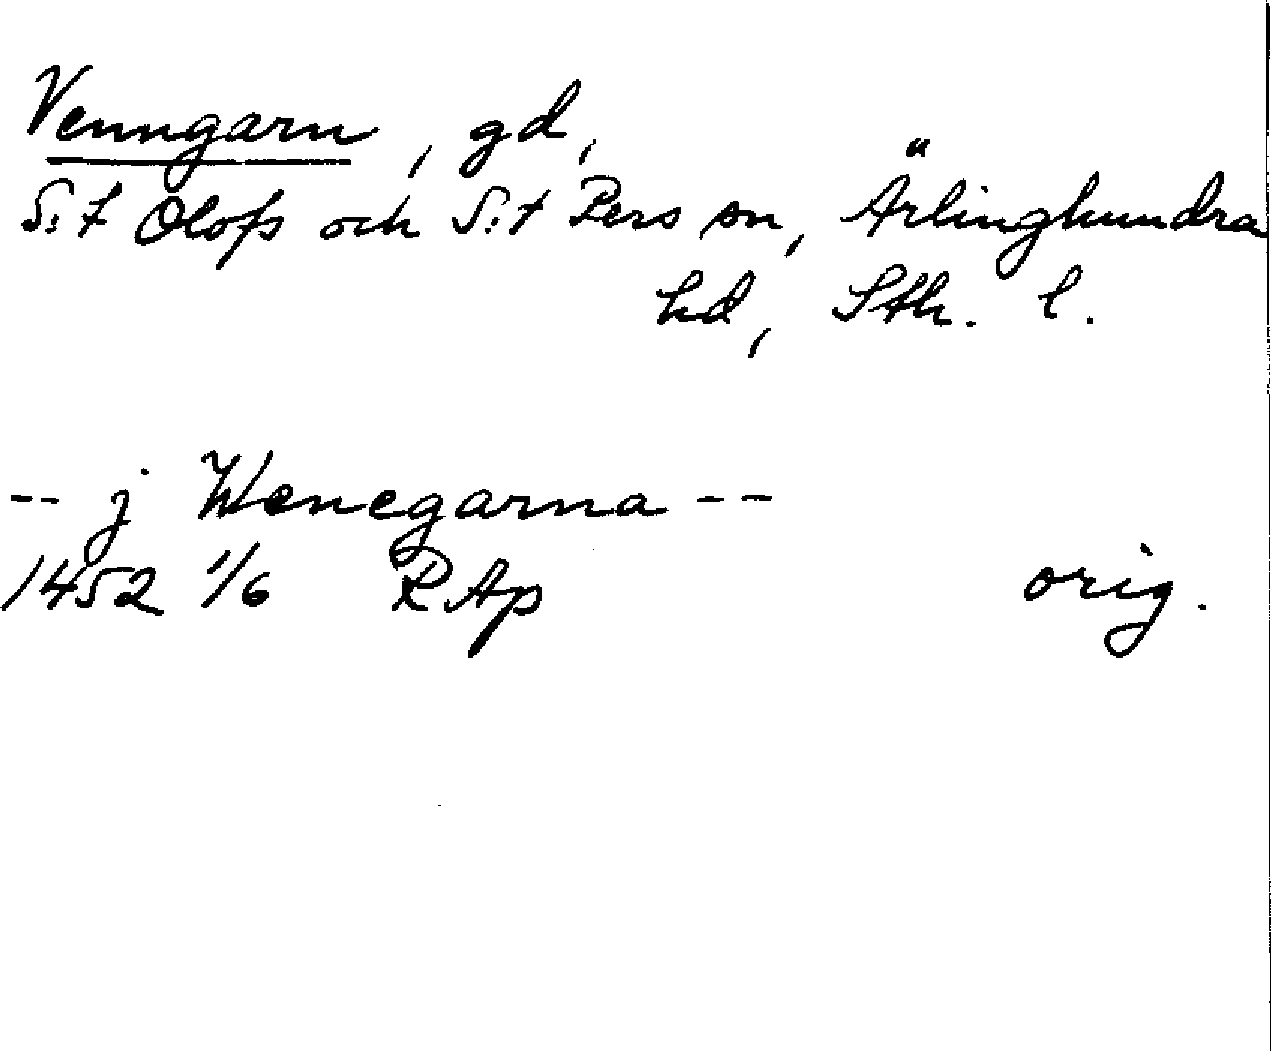 Venngarn, gd,
S:t Olofs och S:t Pers sn, Ärlinghundra
hd, Sth. l.
-- j Wenegarna --
1452 1/6 RAp orig.